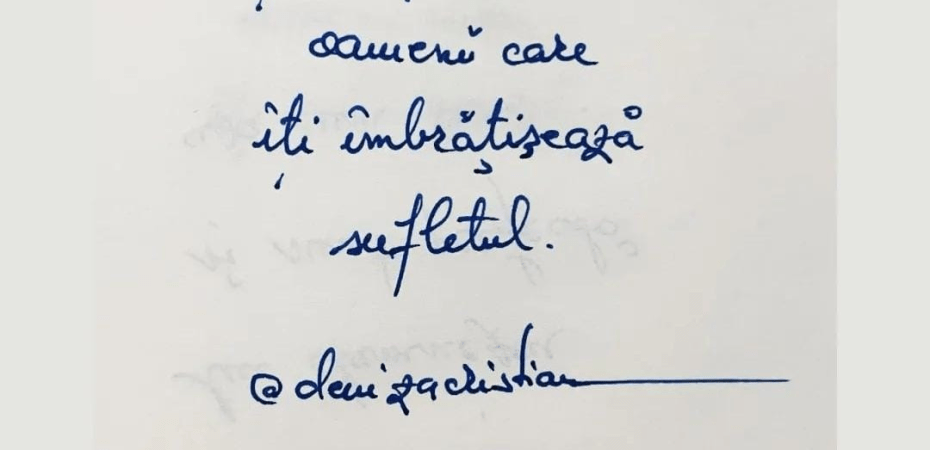 oameni care
îți îmbrățișează
sufletul.
@denizacristian